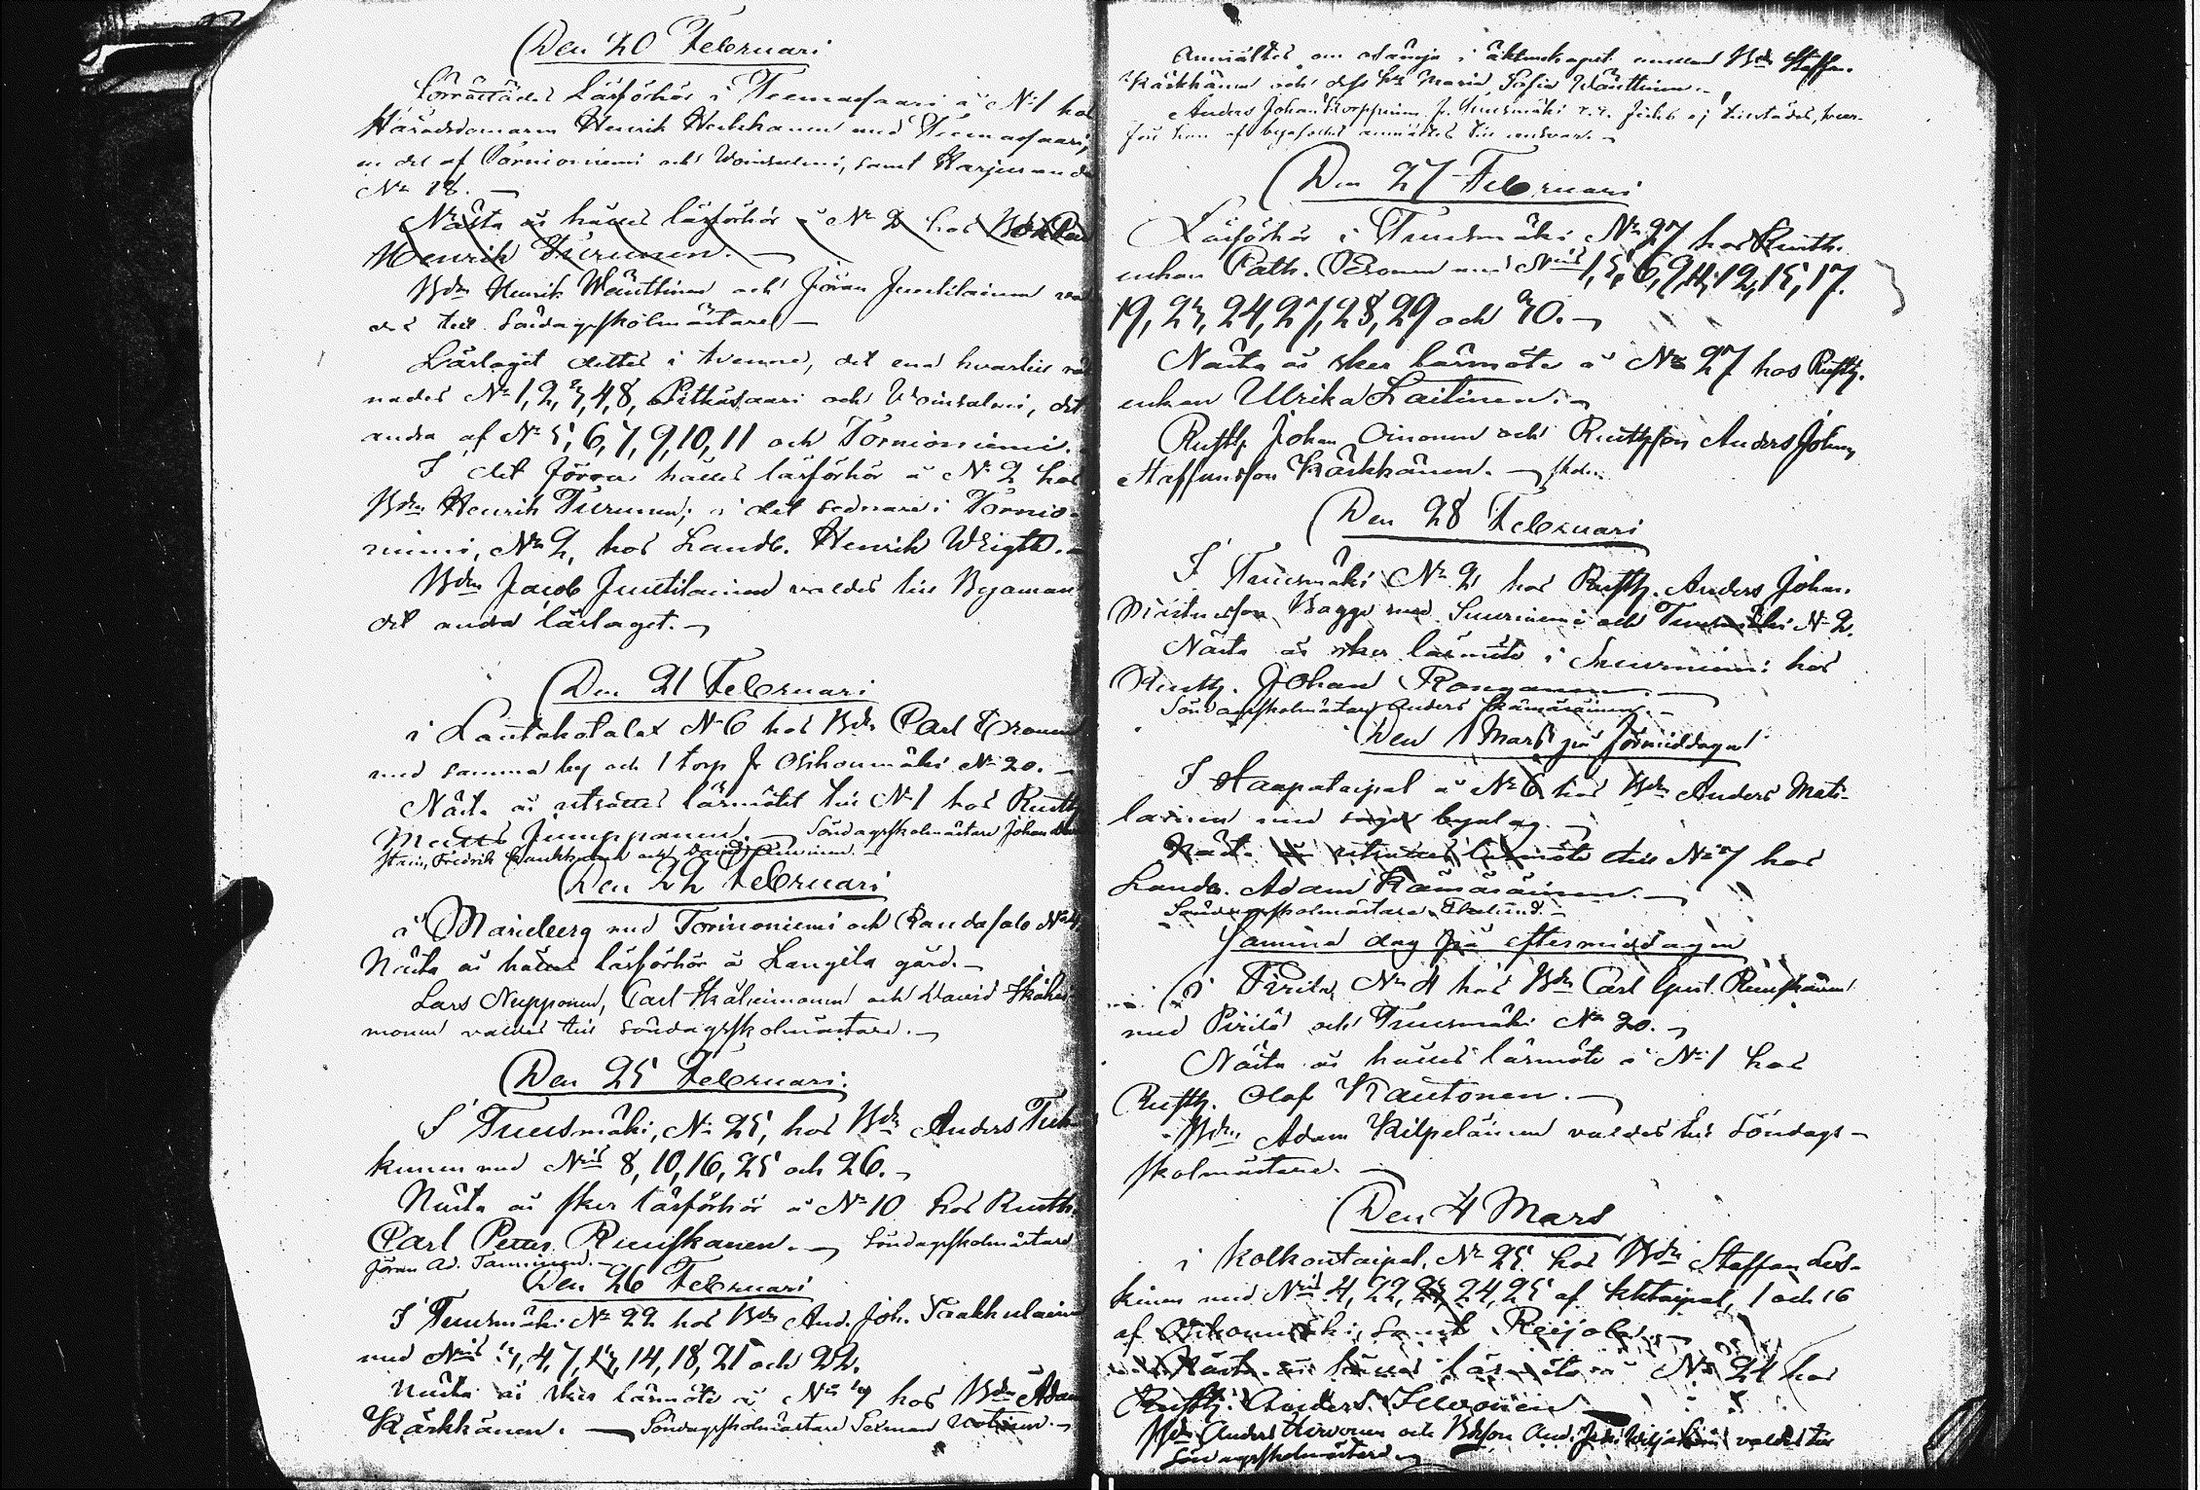 Den 20 Februari
Förrättades Läsförhör i Teemassaari å No 1 hos
Häradsdomaren Henrik med Teemassaari,
en del af Tornioniemi och Woinsalmi, samt Harjuranda
No 18. —
Nästa år hålles läsförhör å No 2 hos Bdn
Henrik Turunen. —
Bdn Henrik Wänttinen och Jöran Juutilainen val-
des till Söndagsskolmästare —
Läslaget deltes i tvenne, det ena hvartill räk-
nades No 1, 2, 3, 4, 8, Pitkäsaari och Woinsalmi, det
andra af No 5, 6, 7, 9, 10, 11 och Tornioniemi.
I det förra hålles läsförhör å No 2 hos
Bdn Henrik Turunen; i det sednare i Tornio-
niemi, No 2, hos Landb. Henrik
Bdn Jacob Juutilainen valdes till Byaman i
det andra läslaget. —
Den 21 Februari
i Lautakotalax No 6 hos Bdn Carl
med samma by och 1 torp fr Osikonmäki No 20. —
Nästa år uträttas läsmötet till No 1 hos Rusth
Matts Jumppanen. — Söndagsskolmästare Johan
Fredrik och David
Den 22 Februari
å Marieberg med Tornioniemi och Randasalo No 4.
Nästa år hålles läsförhör å Langila gård. —
Lars Nupponen, Carl och David
monen valdes till söndagsskolmästare. —
Den 25 Februari.
I Tuusmäki, No 25, hos Bdn Anders Tuk-
kunen med Nris 8, 10, 16, 25 och 26. —
Nästa år sker läsförhör å No 10 hos Rusth.
Carl Petter Ruuskanen. — Söndagsskolmästare
Jöran Ad. Tanninen. —
Den 26 Februari
I Tuusmäki No 22 hos Bdn And. Joh.
med Nris 3, 4, 7, 13, 14, 18, 21 och 22.
Nästa år sker läsmöte å No hos Bdn Adam
Kärkkänen. — Söndagsskolmästare Herman
Anmältes om oenighet i äktenskapet emellan Bdn Staffan
Kärkkänen och dess h:u Maria Sofia Wänttinen. —
Anders Johan Korppinen fr Tuusmäki No 2. fick ej tillstådes, hvar-
för han af byafolket anmältes till ansvar. —
Den 27 Februari
Läsförhör i Tuusmäki No 27 hos Rusth.
enkan Cath. med Nris 1, 5, 6, 9, 11, 12, 15, 17.
19, 23, 24, 27, 28, 29 och 30. —
Nästa år sker läsmöte å No 27 hos Rusth.
enkan Ulrika Laitinen. —
Rusth. Johan Oinonen och Rusthson Anders Johan
Staffansson Kärkkänen. —
Den 28 Februari
I Tuusmäki No 2 hos Rusth. Anders Johan
Bagge med Suurniemi och Tuusmäki No 2.
Nästa år sker läsmöte i Suurniemi hos
Rusth. Johan Ronganen. —
Söndagsskolmästare Anders Hämäläinen. —
Den 1 Mars på förmiddagen
I Haapataipal å No 6 hos Bdn Anders Mati-
lainen med byalag. —
Nästa år uträttas läsmöte till No 7 hos
Landb. Adam Hämäläinen. —
Söndagsskolmästare —
Samma dag på eftermiddagen
i Pirilä, No 4 hos Bdn Carl Gust. Ruuskanen
med Pirilä och Tuusmäki No 20. —
Nästa år hålles läsmöte å No 1 hos
Rusth. Olof Kautonen. —
Bdn Adam Kilpeläinen valdes till Söndags-
skolmästare. —
Den 4 Mars
i Kolkontaipal, No 25 hos Bdn Staffan Les-
kinen med Nris 4, 22, 23, 24, 25 af Kktaipal, 1 och 16
af Osikonmäki, samt Reijola. —
Nästa år hålles läsmöte å No 24 hos
Rusth. Anders
Bdn Anders Hirvonen och Bdson And. Joh. valdes till
Söndagsskolmästare —